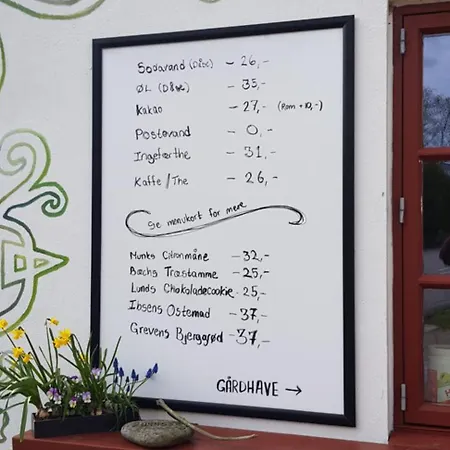 Sodavand (Dåse) - 26,-
ØL (Dåse) - 35,-
Kakao - 27,- (Rom +10,-)
Postevand - 0,-
Ingefærthe - 31,-
Kaffe/The - 26,-
Se menukort for mere
Munks Citronmåne - 32,-
Bachs Træstamme - 25,-
Lunds Chokoladecookie - 25,-
Ibsens Ostemad - 37,-
Grevens Bjerggrød - 37,-
GÅRDHAVE →